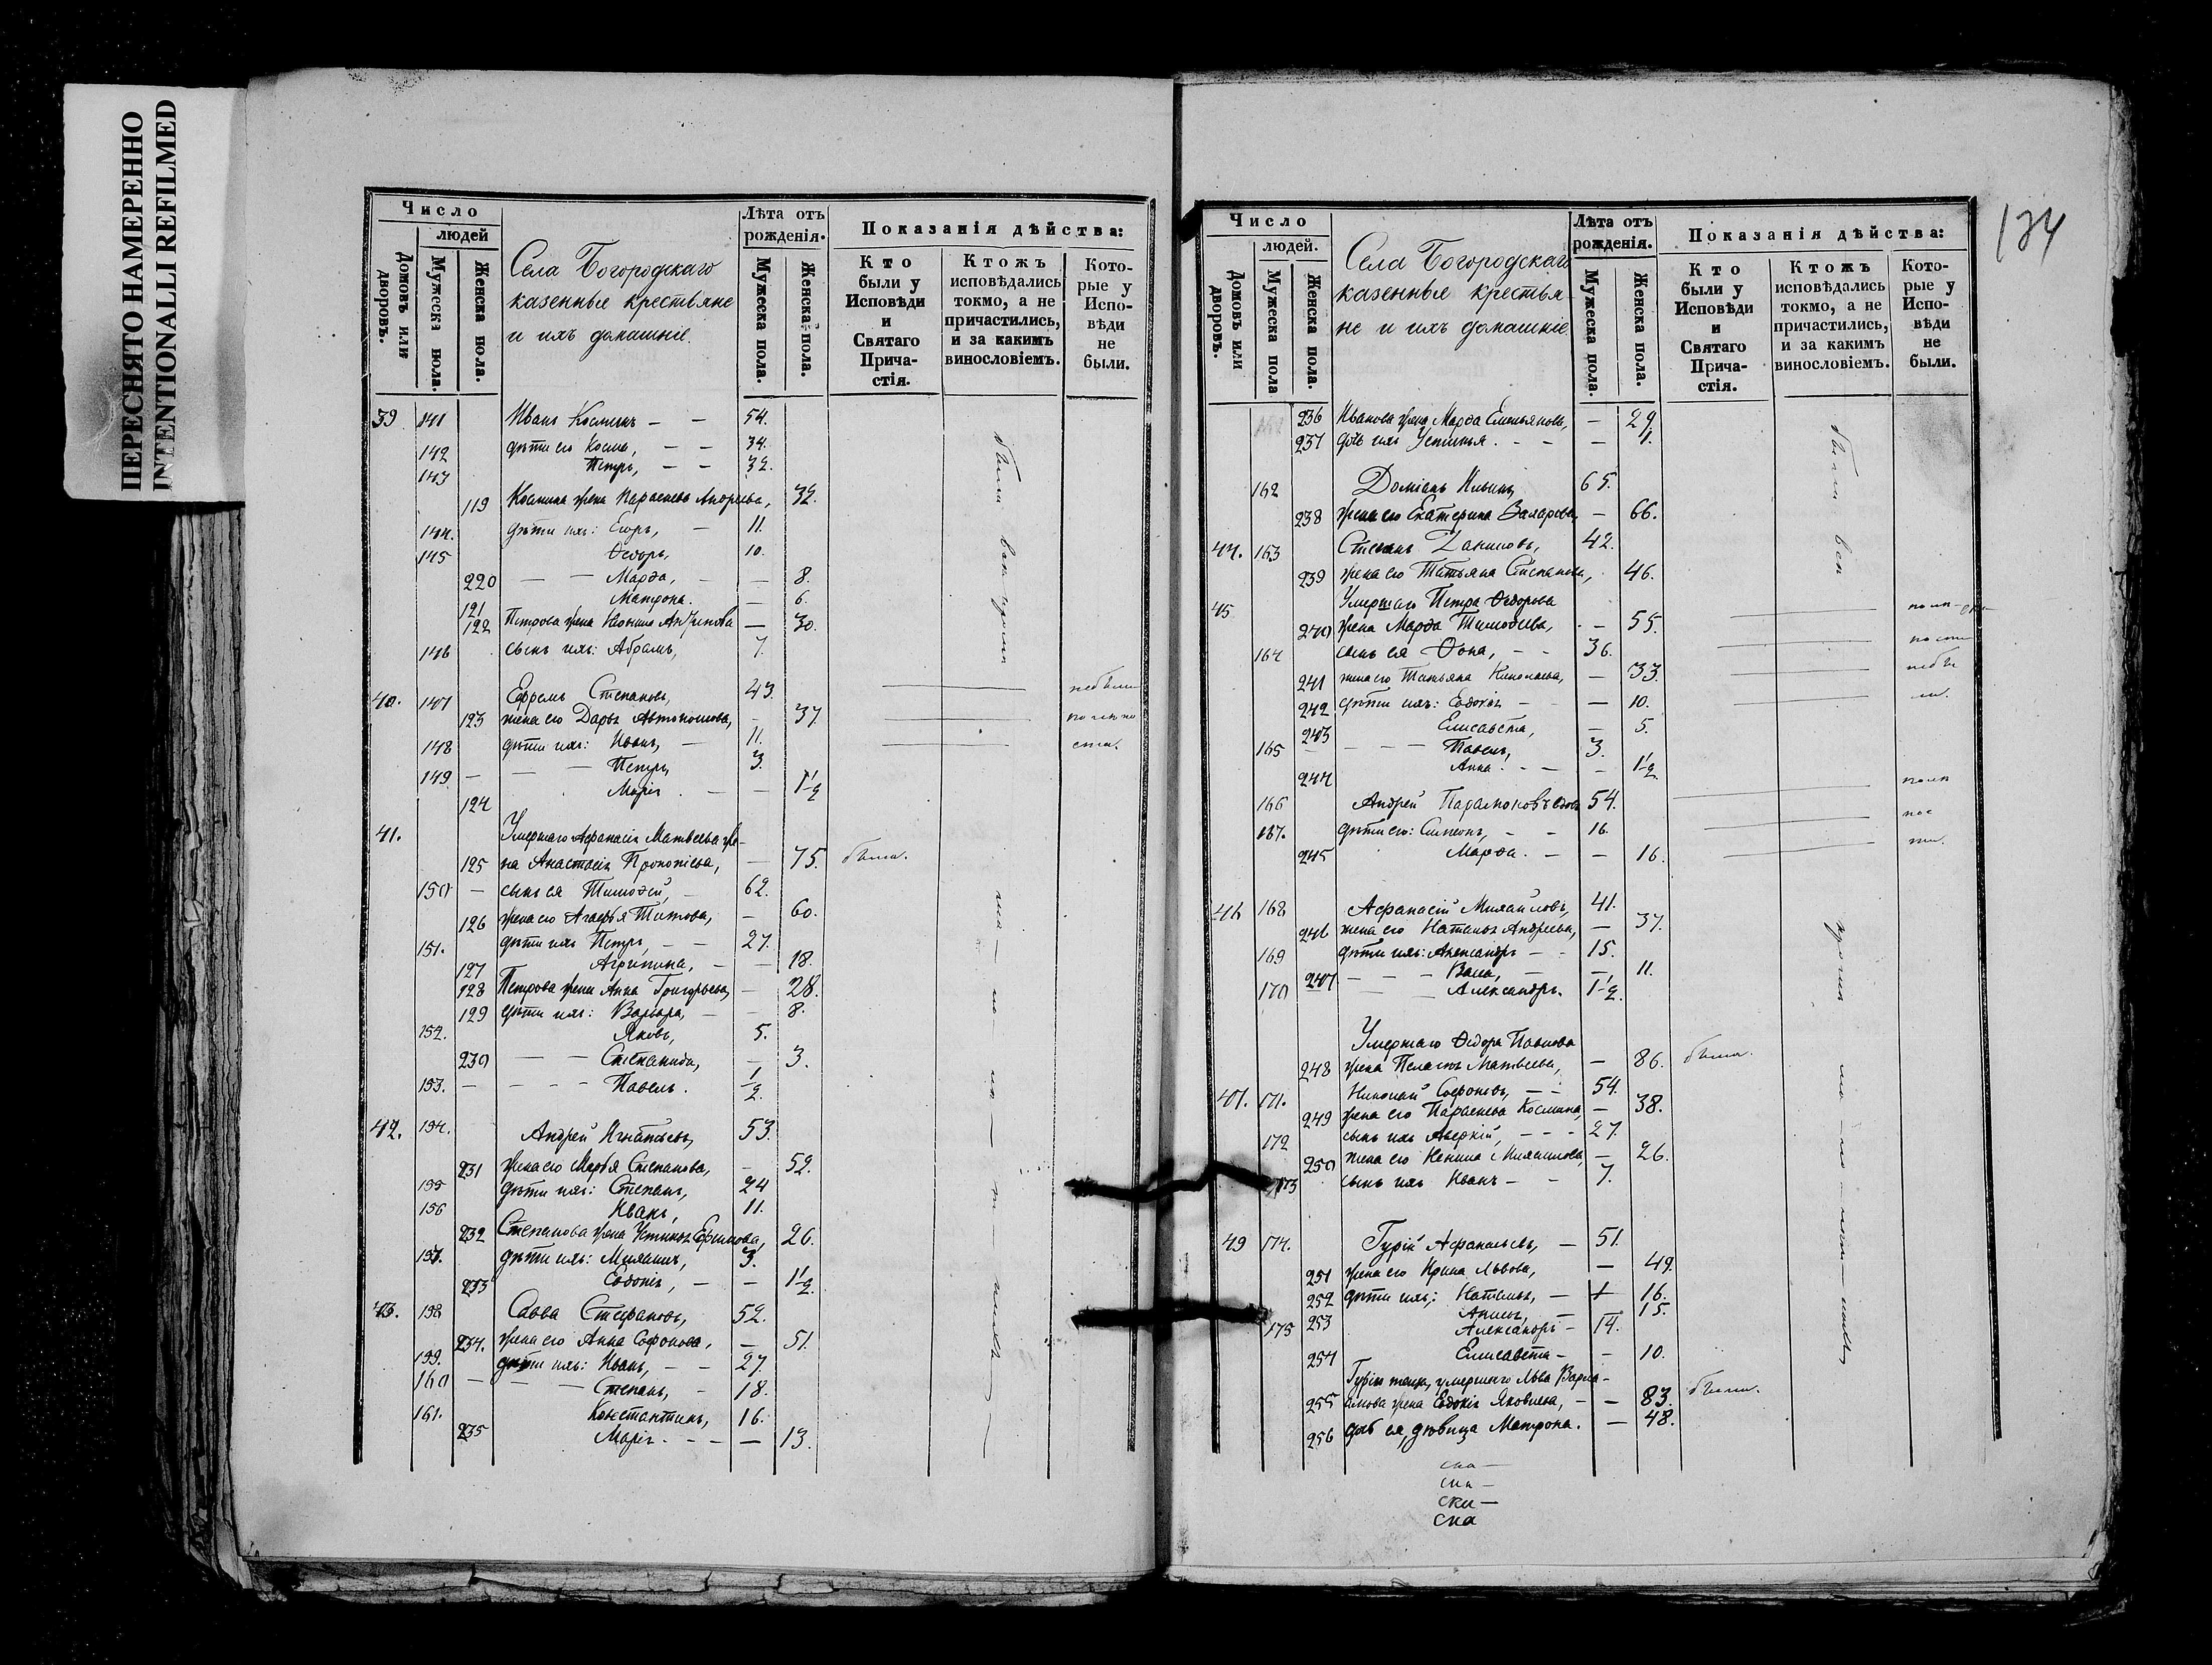 ПЕРЕСНЯТО НАМЕРЕННО
INTENTIONALLI REFILMED
Число
людей
Домовъ или дворовъ.
Мужеска пола.
Женска пола.
Села Богородскаго
казенные крестьяне
и ихъ домашніе.
Лѣта отъ
рожденія.
Мужеска пола.
Женска пола.
Показанія дѣйства:
Кто были у Исповѣди и Святаго Прича-стія.
Ктожъ исповѣдались токмо, а не причастились, и за какимъ винословіемъ.
Кото-рые у Испо-вѣди не были.
39 141 Иванъ Косминъ — — 54.
142 дѣти его Косма, — — 34.
143 Петръ, — — 32.
119 Космина жена Параскева Андреева, 32.
144. дѣти ихъ: Егоръ, — 11.
145 Ѳедоръ, 10.
220 — — Марѳа, — — 8.
121 Матрона. — 6.
122 Петрова жена — 30.
146 сынъ ихъ: Абрамъ, 7.
40. 147 Ефремъ Степановъ, 43. небыли
123 жена его Дарья Автономова, — 37.
148 дѣти ихъ: Иванъ, — 11.
149 — — — Петръ, 3.
124 Марія — — 1 1/2
41. Умершаго Афанасія Матвеева же-
125 на Анастасія Прокопіева, — 75. была.
150 — сынъ ея Тимоѳей, — 62.
126 жена его Агафья Титова, — 60.
151. дѣти ихъ Петръ, — — 27.
127 Агрипина, — — 18.
128 Петрова жена Анна Григорьева, — 28.
129 дѣти ихъ: Варвара, — — 8.
152. Яковъ, 5.
230 — — Степанида, — 3.
153. — — — — Павелъ. 1/2.
42. 154. Андрей Игнатьевъ, 53.
231 жена его Марья Степанова, — 52.
155 дѣти ихъ: Степанъ, 24
156 Иванъ, 11.
232 Степанова жена Устинья Ефимова, 26.
157. дѣти ихъ: Михаилъ, 3.
233 Евдокія, — — 1 1/2
43. 158 Савва Стефановъ, 52.
234. жена его Анна Софонова, — 51.
159. дѣти ихъ: Иванъ, — — 27.
160 — — — Степанъ, — 18.
161. Константинъ, 16.
235 Марія — — — 13.
134
Число
людей.
Домовъ или дворовъ.
Мужеска пола
Женска пола.
Села Богородскаго
казенные крестья
не и ихъ домашніе
Лѣта отъ
рожденія.
Мужеска пола.
Женска пола.
Показанія дѣйства:
Кто были у Исповѣди и Святаго Прича-стія.
Ктожъ исповѣдались токмо, а не причастились, и за какимъ винословіемъ.
Кото-рые у Испо-вѣди не были.
236 Иванова жена Марѳа Емельянова, — 29.
237 дочь ихъ Устинья. — — — 1.
162 Доміанъ Ильинъ, 65.
238 жена его Екатерина Захарова, — 66.
44. 163 Степанъ Даниловъ, 42.
239 жена его Татьяна Степанова, 46.
45 Умершаго Петра Ѳедорова
240 жена Марѳа Тимоѳеева, — 55.
164 сынъ ея Ѳома, — — 36.
241 жена его Татьяна Николаева, — 33.
242 дѣти ихъ: Евдокія — — 10.
243 Елисавета, — 5.
165 — — — Павелъ, 3.
244 Анна. — — — 1 1/2
166 Андрей Парамоновъ вдовъ 54.
167. дѣти его: Симеонъ, — — 16.
245 Марѳа. — — 16.
46 168 Афанасій Михайловъ, 41.
246 жена его Наталья Андреева, — 37.
169 дѣти ихъ: Александръ — — 15.
247 — — — — 11.
170 — Александръ. 1 1/2.
Умершаго Ѳедора Павлова
248 жена Пелагія Матвеева, — 86. была.
47. 171. Николай Софоновъ, — — 54.
249 жена его Параскева Космина, — 38.
172 сынъ ихъ Аверкій, — — — 27.
250 жена его Ксенія — 26.
173 сынъ ихъ Иванъ — — 7.
49 174. Гурій Афанасьевъ, — 51.
251 жена его Ирина Львова, — 49.
252 дѣти ихъ: Наталья, — 16.
253 — 15.
175 Александръ — 14.
254 Елисавета — — 10.
Гурія теща, умершаго Льва Варла-
255 амова жена Евдокія Яковлева, — — 83. была.
256 дочь ея, дѣвица Матрона. — 48.
ска —
ска —
ски —
ска